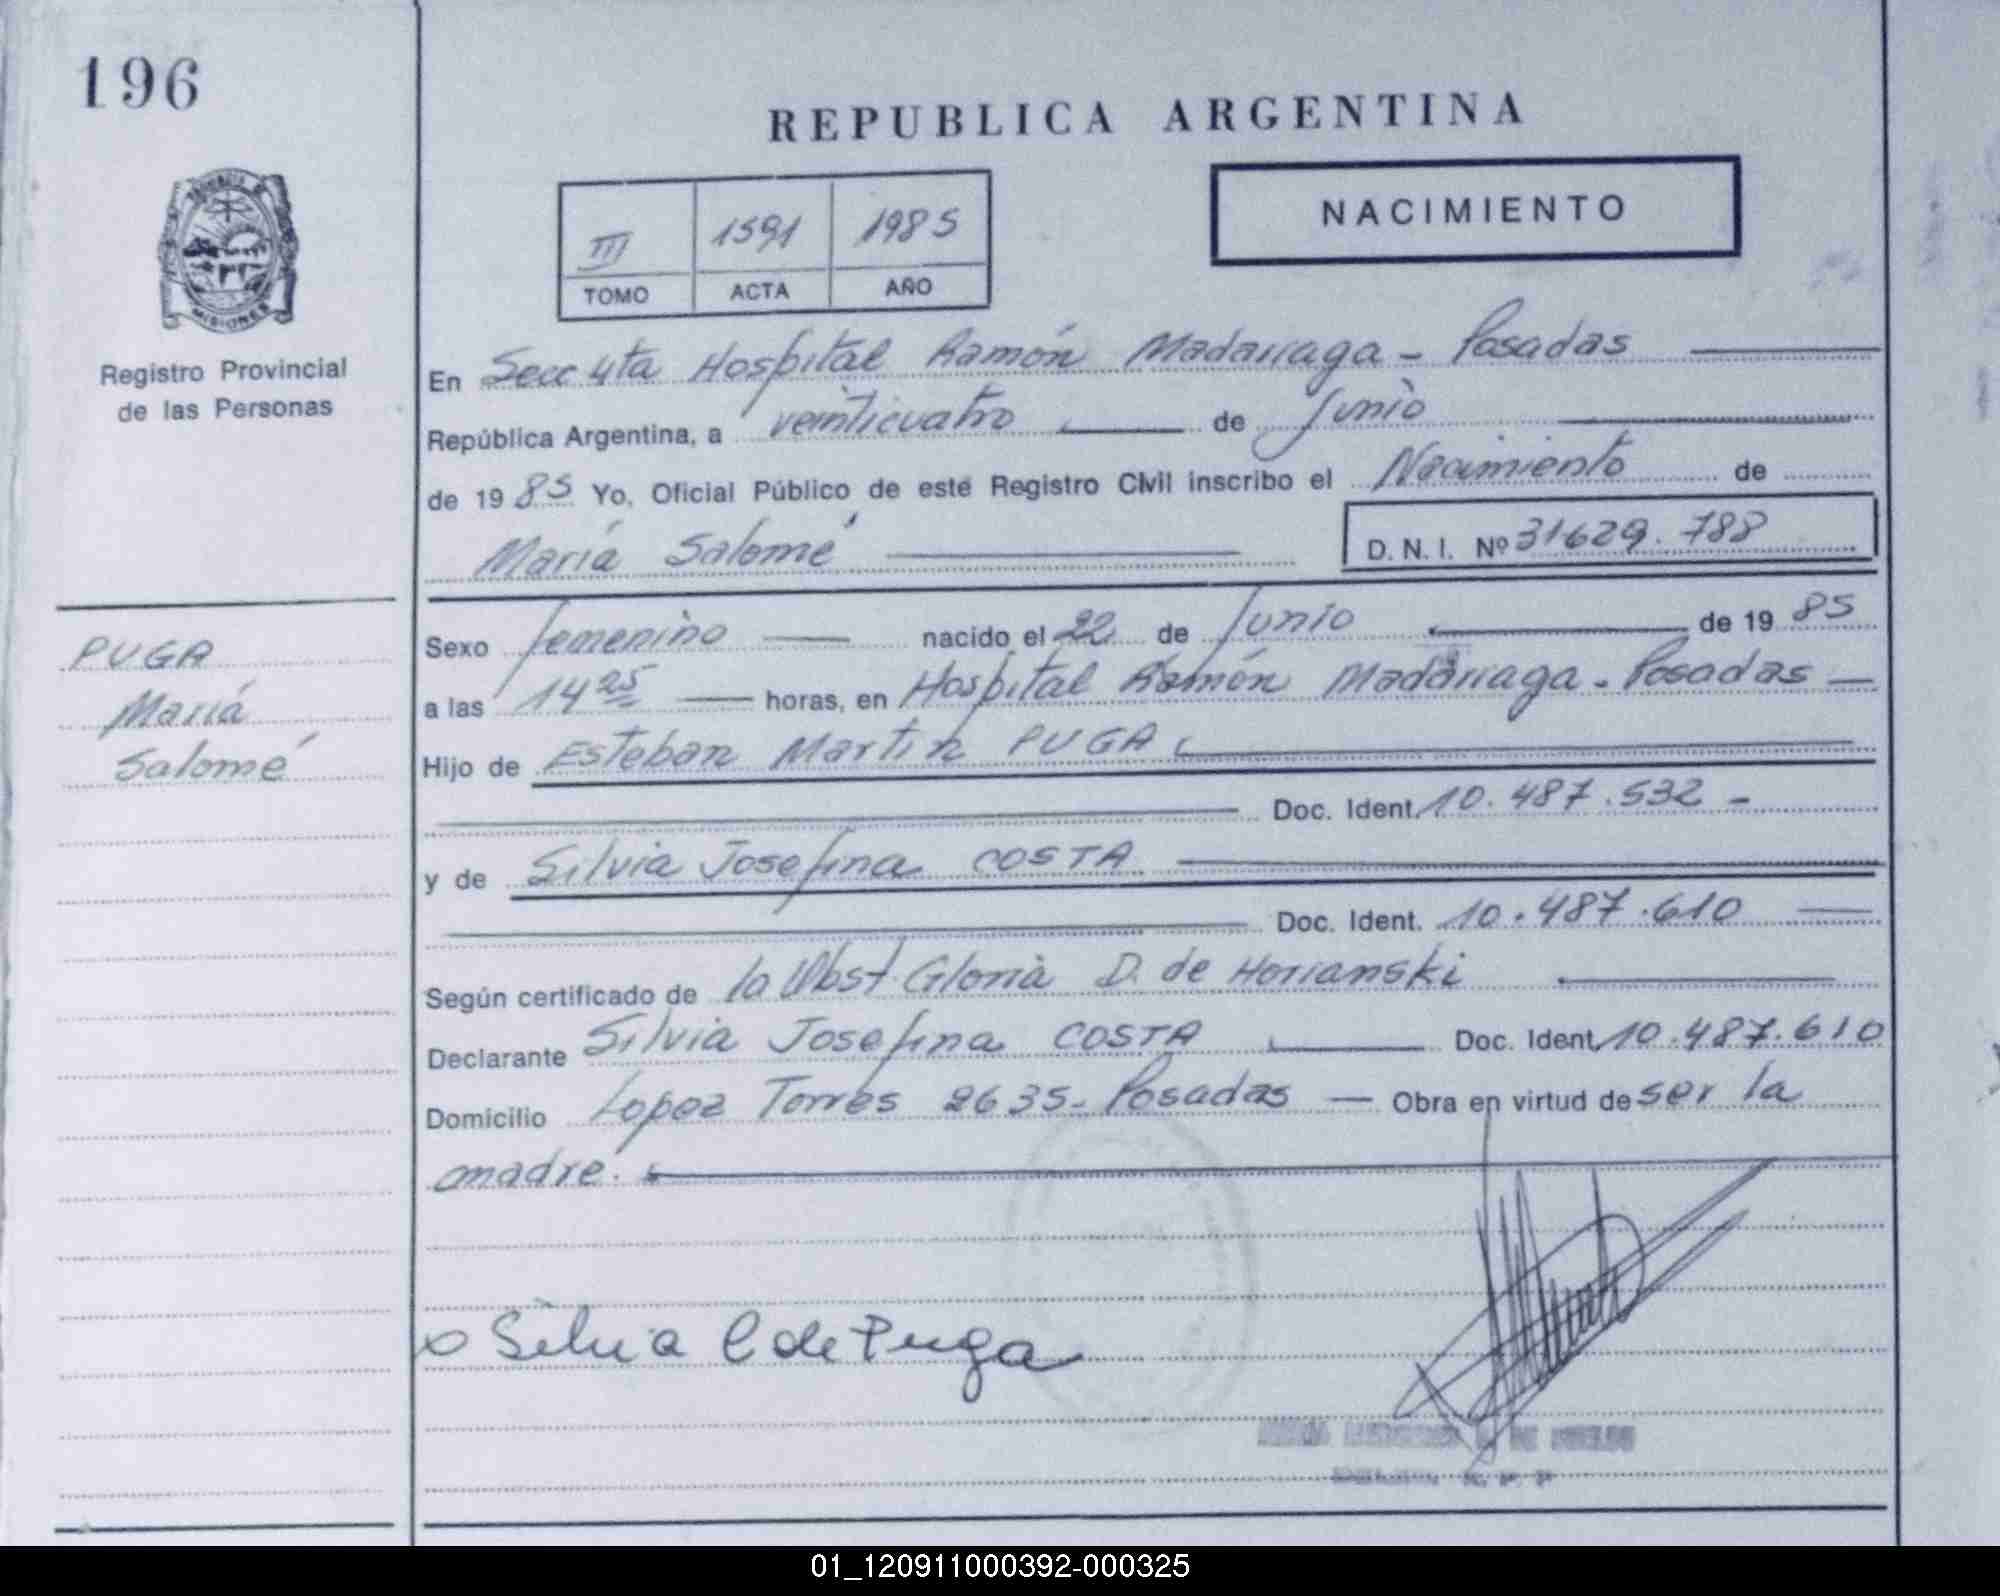 196
REPUBLICA ARGENTINA
NACIMIENTO
III 1591 1985
TOMO ACTA AÑO
MISIONES
Registro Provincial
de las Personas
En Secc 4ta Hospital Ramón Madariaga - Posadas
República Argentina, a veinticuatro de Junio
de 1985 Yo, Oficial Público de este Registro Civil inscribo el Nacimiento de
María Salomé D.N.I. Nº 31629.788
PUGA
María
Salomé
Sexo femenino nacido el 22 de Junio de 1985
a las 14 25 horas, en Hospital Ramón Madariaga - Posadas
Hijo de Esteban Martin PUGA
Doc. Ident. 10.487.532 -
y de Silvia Josefina COSTA
Doc. Ident. 10.487.610
Según certificado de la Obst. Gloria D. de Horianski
Declarante Silvia Josefina COSTA Doc. Ident. 10.487.610
Domicilio Lopez Torres 2635 - Posadas - Obra en virtud de ser la
madre.
Silvia C de Puga
01_120911000392-000325